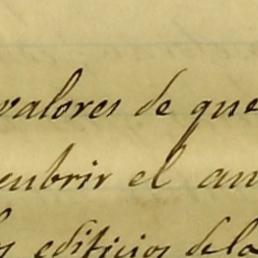 valores de que
cubrir el an
s edificios de la